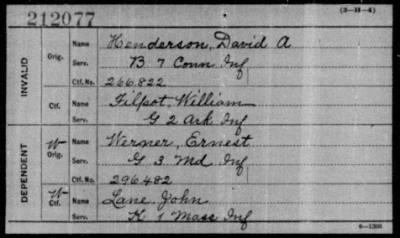 212077
(3—H—4)
INVALID
Orig.
Name Henderson, David A
Serv. B 7 Conn Inf
Ctf. No. 266,822
Ctf.
Name Filpot, William
Serv. G 2 Ark Inf
DEPENDENT
W
Orig.
Name Werner, Ernest
Serv. G 3 Md Inf
Ctf. No. 296482
W
Ctf.
Name Lane, John
Serv. K 1 Mass Inf
6—1266